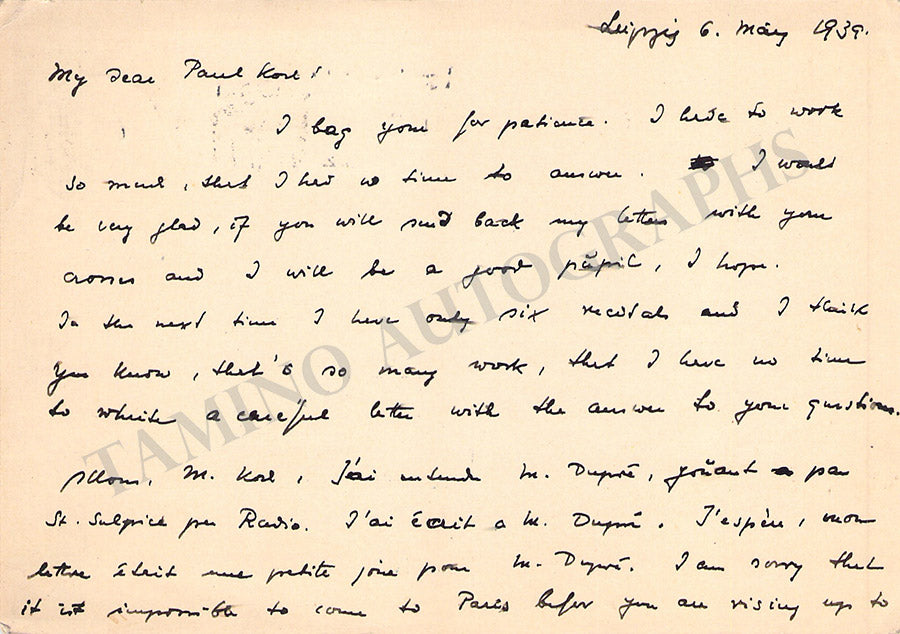 Leipzig 6. März 1939.
My dear Paul Koch!
I bag your for patience. I have to work
so much, that I had no time to answer. I would
be very glad, if you will send back my letters with your
crosses and I will be a good pupil, I hope.
In the next time I have only six recitals and I think
you know, that's so many work, that I have no time
to white a careful letter with the answer to your questions.
Allons, M. Koch, J'ai entendu M. Dupré, joüant par
St. Sulpice per Radio. J'ai écrit a M. Dupré. J'espère, mon
lettre était une petite joie pour M. Dupré. I am sorry that
it is impossible to come to Paris befor you are rising up to
TAMINO AUTOGRAPHS